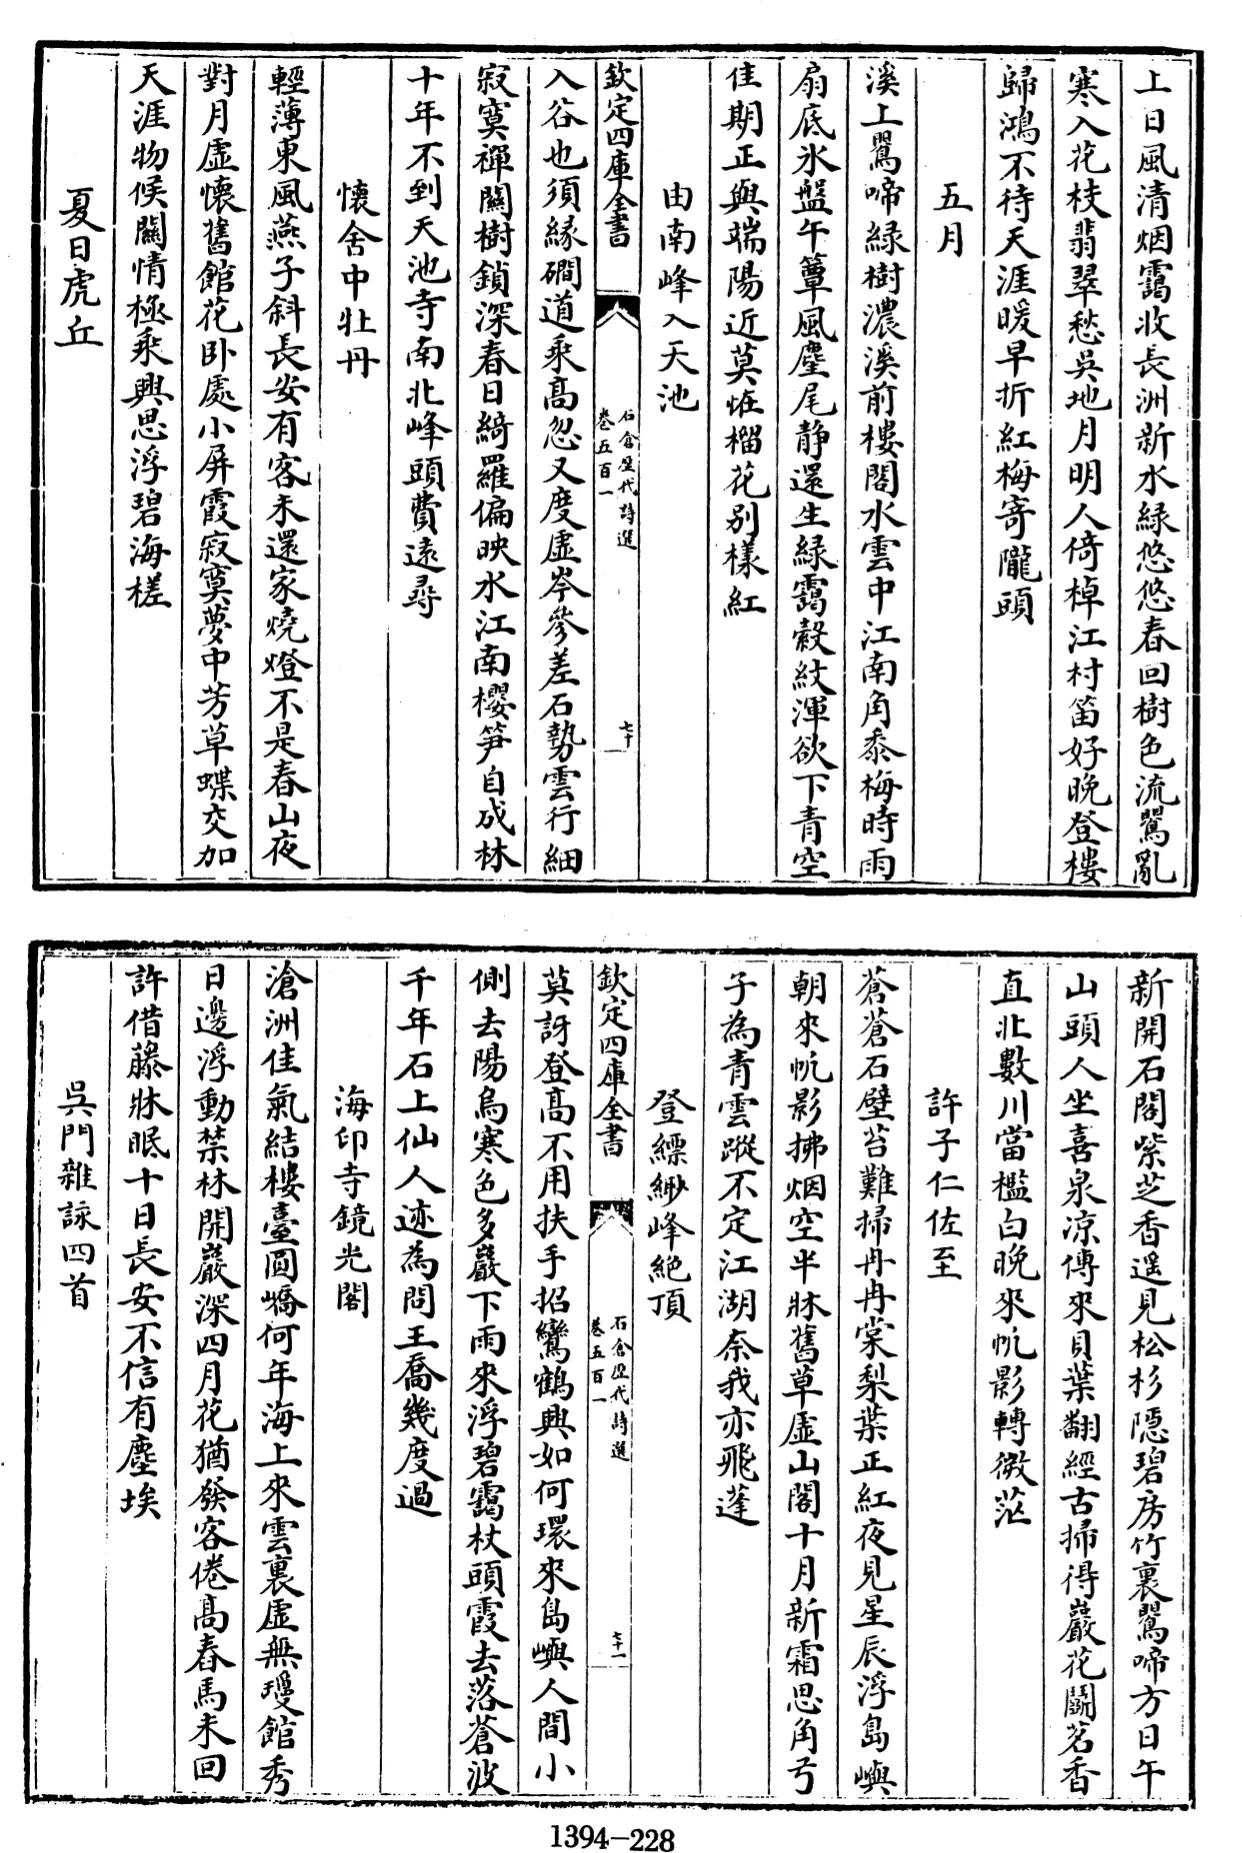 上日風清烟靄收長洲新水緑悠悠春回樹色流鶯亂
寒入花枝翡翠愁吳地月明人倚棹江村笛好晚登樓
歸鴻不待天涯暖早折紅梅寄隴頭
五月
溪上鶯啼緑樹濃溪前樓閣水雲中江南角黍梅時雨
扇底氷盤午簟風麈尾静還生緑靄縠紋渾欲下青空
佳期正與端陽近莫怪榴花别様紅
由南峰入天池
欽定四庫全書
石倉歴代詩選
卷五百一
七十
入谷也須縁磵道乘高忽又度虛岑參差石勢雲行細
寂寞禪關樹鎖深春日綺羅偏映水江南櫻笋自成林
十年不到天池寺南北峰頭費遠尋
懷舍中牡丹
輕薄東風燕子斜長安有客未還家燒燈不是春山夜
對月虛懷舊館花卧處小屏霞寂寞夢中芳草蝶交加
天涯物候關情極乘興思浮碧海槎
夏日虎丘
新開石閣紫芝香遥見松杉隱碧房竹裏鶯啼方日午
山頭人坐喜泉凉傳來貝葉翻經古掃得巖花鬭茗香
直北數川當檻白晚來帆影轉微茫
許子仁佐至
蒼蒼石壁苔難掃冉冉棠梨葉正紅夜見星辰浮島嶼
朝來帆影拂烟空半牀舊草虛山閣十月新霜思角弓
子為青雲蹤不定江湖奈我亦飛蓬
登縹緲峰絶頂
欽定四庫全書
石倉歴代詩選
卷五百一
七十一
莫訝登高不用扶手招鸞鶴興如何環來島嶼人間小
側去陽烏寒色多巖下雨來浮碧靄杖頭霞去落蒼波
千年石上仙人迹為問王喬幾度過
海印寺鏡光閣
滄洲佳氣結樓臺圓嶠何年海上來雲裏虛無瓊館秀
日邊浮動禁林開巖深四月花猶發客倦高舂馬未回
許借藤牀眠十日長安不信有塵埃
吳門雜詠四首
1394-228